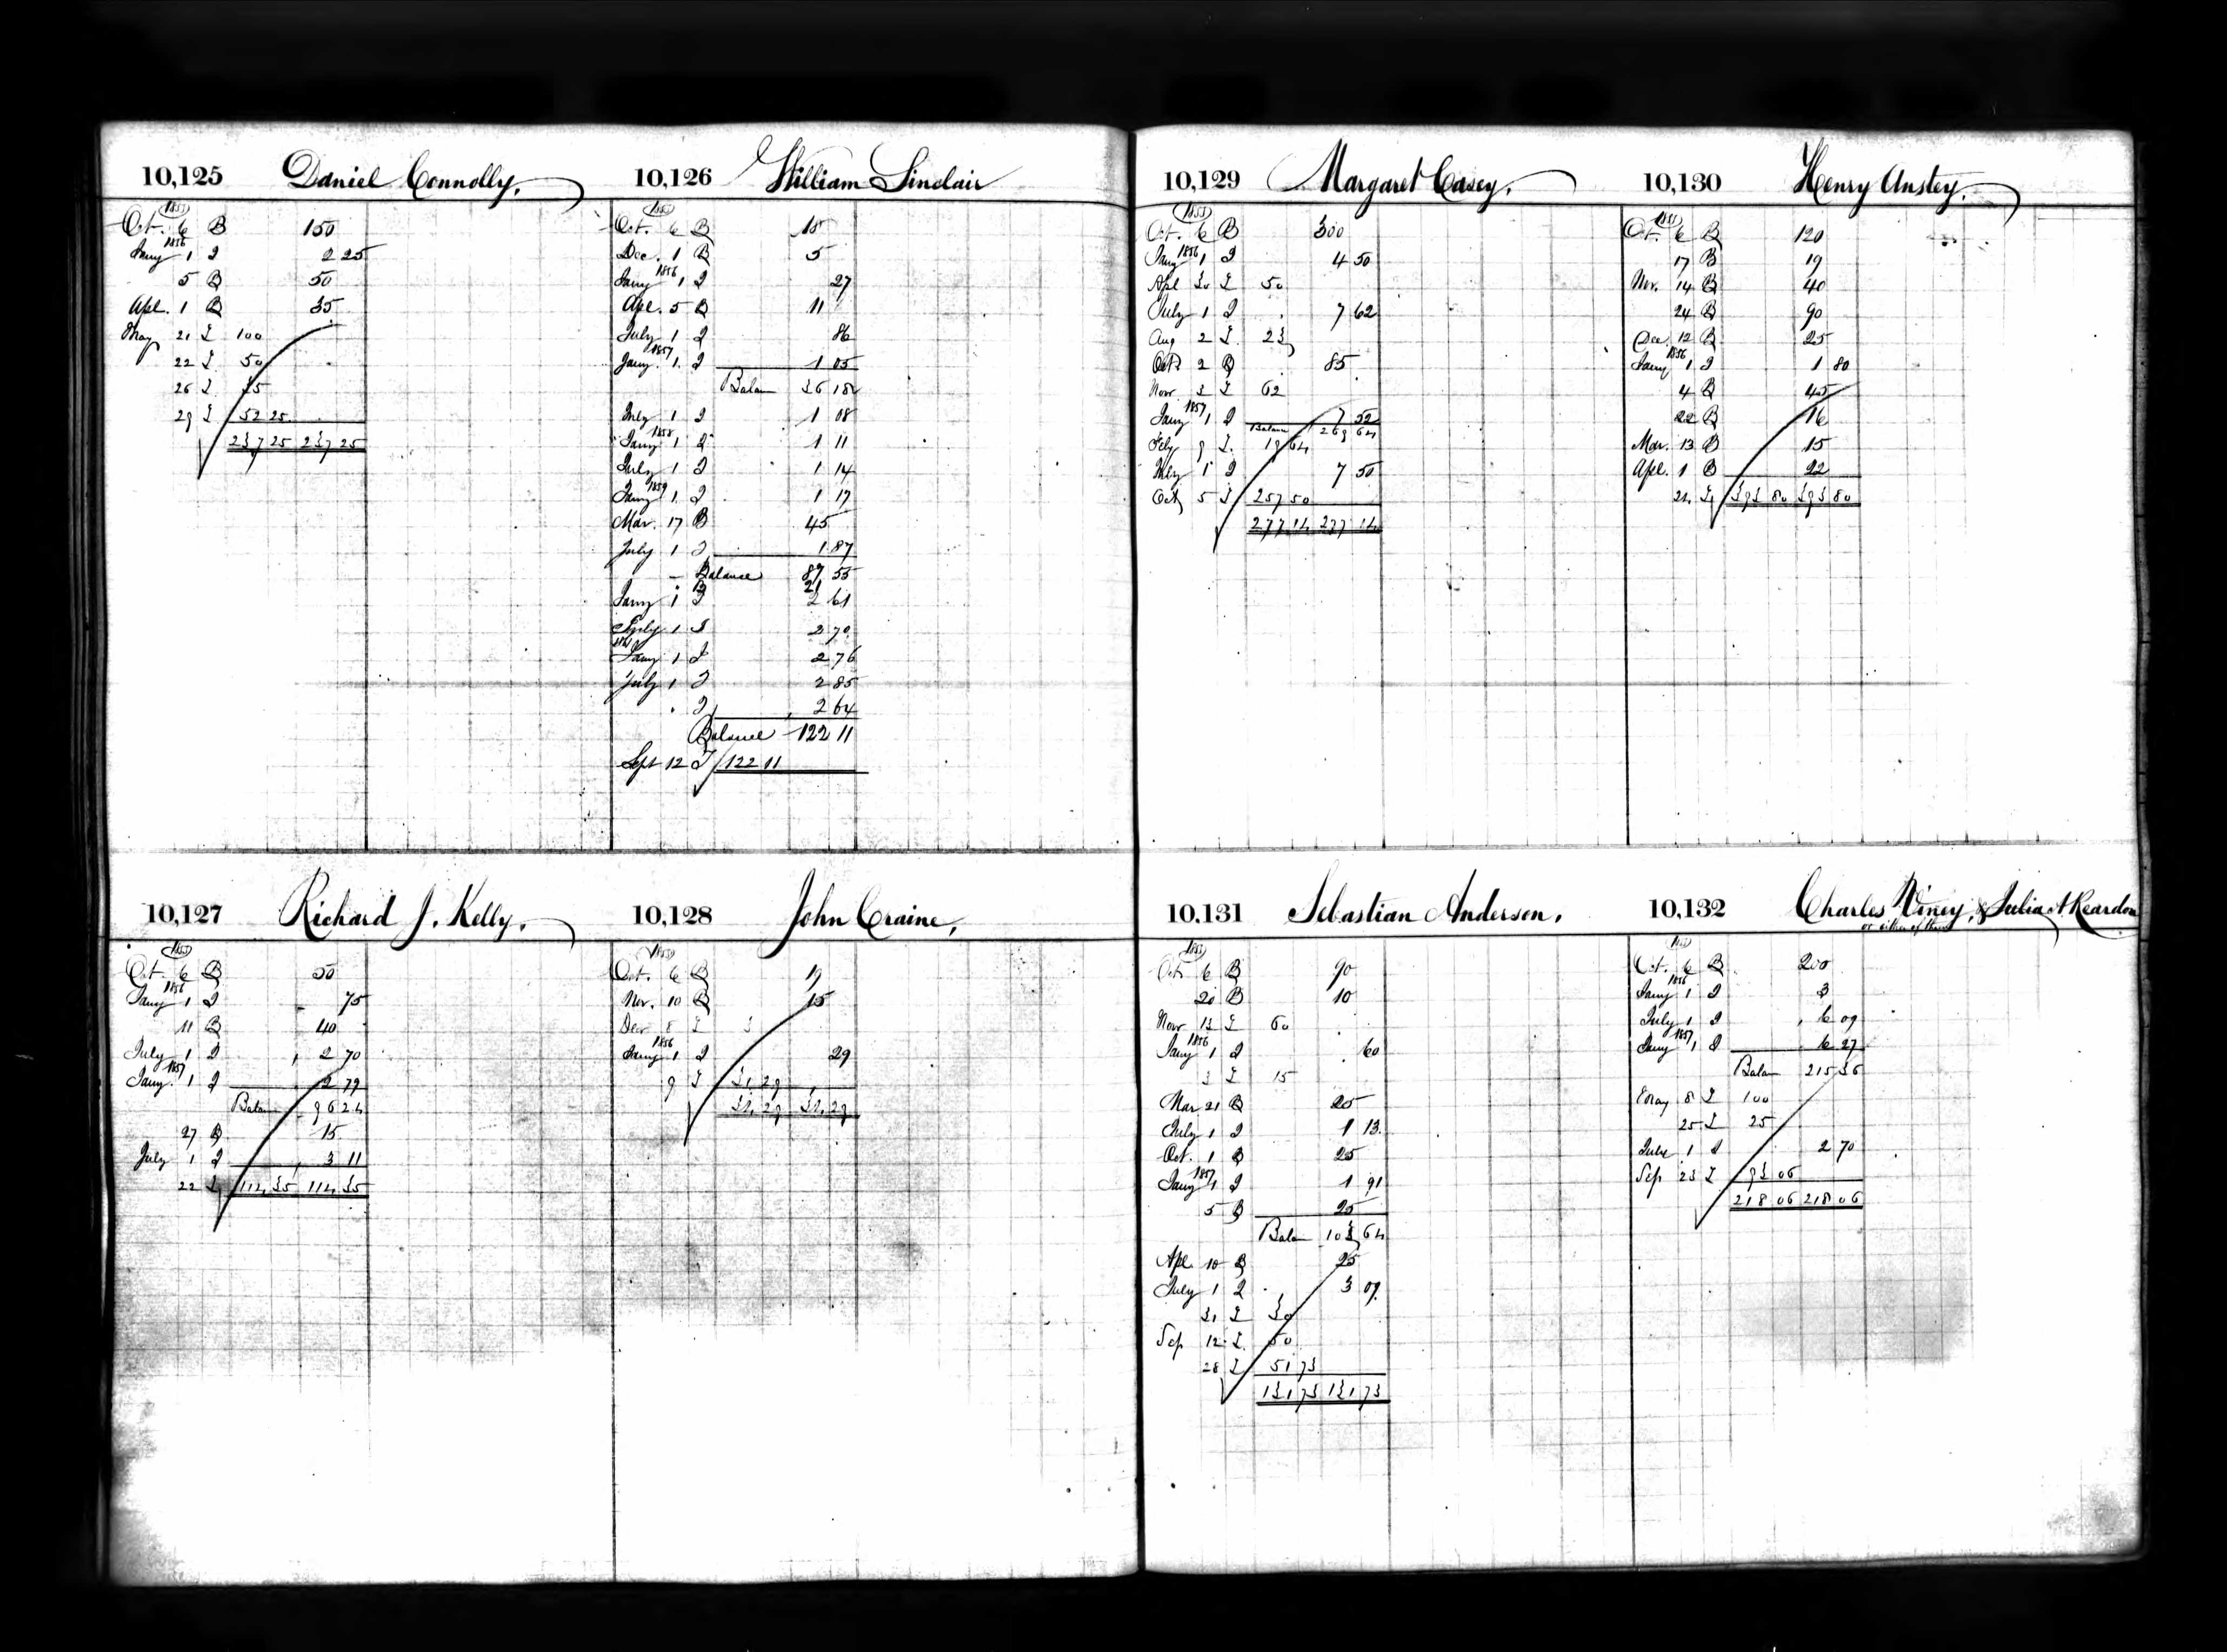 10,125 Daniel Connolly.
1855
Oct. 6 B 150
1856
Jany 1 I 2 25
5 B 50
Apl. 1 B 35
May 21 I 100
22 I 50
26 I 35
29 I 52 25
237 25 237 25
10,126 William Sinclair
1855
Oct. 6 B 15
Dec. 1 B 5
1856
Jany 1 I 27
Apl. 5 B 11
July 1 I 86
1857
Jany. 1 I 1 05
Balan 36 18
July 1 I 1 08
1858
Jany 1 I 1 11
July 1 I 1 14
1859
Jany 1 I 1 17
Mar. 17 B 45
July 1 I 1 87
Balance 87 55
B 21
Jany 1 I 2 61
July 1 I 2 70
1861
Jany 1 I 2 76
July 1 I 2 85
I 2 64
Balance 122 11
Sept 12 I 122 11
10,127 Richard J. Kelly.
1855
Oct. 6 B 50
1856
Jany 1 I 75
11 B 40
July 1 I 2 70
1857
Jany. 1 I 2 79
Balan 96 24
27 B 15
July 1 I 3 11
22 I 114 35 114 35
10,128 John Craine,
1855
Oct. 6 B 19
Nov. 10 B 15
Dec 8 I 3
1856
Jany 1 I 29
9 I 31 29
34 29 34 29
10,129 Margaret Casey.
1855
Oct. 6 B 300
1856
Jany 1 I 4 50
Apl 30 I 50
July 1 I 7 62
Aug 2 I 23
Oct 2 B 85
Nov 3 I 62
1857
Jany 1 I 7 52
Balan 269 64
Feby 9 I 19 64
July 1 I 7 50
Oct 5 I 257 50
277 14 277 14
10,130 Henry Anstey.
1855
Oct. 6 B 120
17 B 19
Nov. 14 B 40
24 B 90
Dec. 12 B 25
1856
Jany 1 I 1 80
4 B 45
22 B 16
Mar. 13 B 15
Apl. 1 B 22
21 I 393 80 393 80
10,131 Sebastian Anderson.
1855
Oct 6 B 90
20 B 10
Nov 13 I 60
1856
Jany 1 I 60
3 I 15
Mar 21 B 25
July 1 I 1 13
Oct. 1 B 25
1857
Jany 1 I 1 91
5 B 25
Balan 103 64
Apl. 10 B 25
July 1 I 3 09
31 I 30
Sep 12 I 50
28 I 51 73
131 73 131 73
10,132 Charles Viney, & Julia A Reardon
or either of them
1855
Oct. 6 B 200
1856
Jany 1 I 3
July 1 I 6 09
1857
Jany 1 I 6 27
Balan 215 36
May 8 I 100
25 I 25
July 1 I 2 70
Sep 23 I 93 06
218 06 218 06